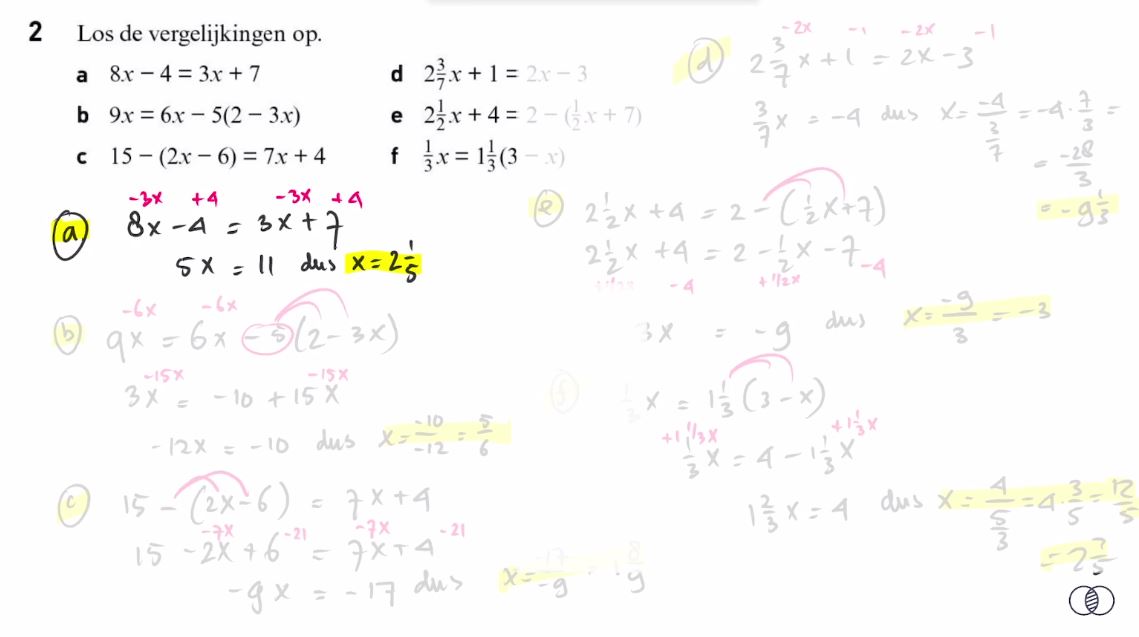 2 Los de vergelijkingen op.
a 8x − 4 = 3x + 7
b 9x = 6x − 5(2 − 3x)
c 15 − (2x − 6) = 7x + 4
d 2 3/7 x + 1 = 2x − 3
e 2 1/2 x + 4 = 2 − (1/2 x + 7)
f 1/3 x = 1 1/3 (3 − x)
-3x +4 -3x +4
a 8x − 4 = 3x + 7
5x = 11 dus x = 2 1/5
-6x -6x
b 9x = 6x − 5(2 − 3x)
-15x -15x
3x = −10 + 15x
−12x = −10 dus x = −10/−12 = 5/6
c 15 − (2x − 6) = 7x + 4
-7x -21 -7x -21
15 − 2x + 6 = 7x + 4
−9x = −17 dus x = −17/−9 = 1 8/9
-2x -1 -2x -1
d 2 3/7 x + 1 = 2x − 3
3/7 x = −4 dus x = −4/(3/7) = −4 · 7/3 =
= −28/3
= −9 1/3
e 2 1/2 x + 4 = 2 − (1/2 x + 7)
2 1/2 x + 4 = 2 − 1/2 x − 7
+1/2x -4 +1/2x -4
3x = −9 dus x = −9/3 = −3
f 1/3 x = 1 1/3 (3 − x)
+1 1/3x +1 1/3x
1/3 x = 4 − 1 1/3 x
1 2/3 x = 4 dus x = 4/(5/3) = 4 · 3/5 = 12/5
= 2 2/5